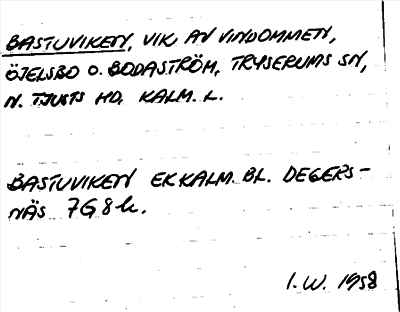 BASTUVIKEN, VIK AV VINDOMMEN,
ÖJELSBO O. BODASTRÖM, TRYSERUMS SN,
N. TJUSTS HD, KALM. L.
BASTUVIKEN EK KALM. BL. DEGERS-
NÄS 7G 8h.
I.W. 1958